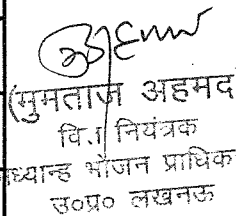 (मुमताज अहमद
वि.। नियंत्रक
मध्यान्ह भोजन प्राधिक
उ०प्र० लखनऊ